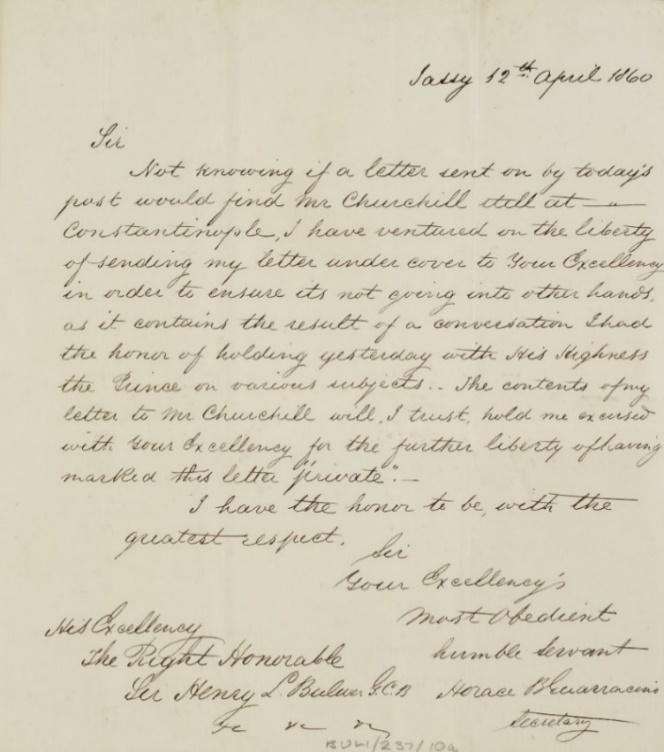 Jassy 12th April 1860
Sir
Not knowing if a letter sent on by today's
post would find Mr Churchill still at —
Constantinople, I have ventured on the liberty
of sending my letter under cover to Your Excellency
in order to ensure its not going into other hands,
as it contains the result of a conversation I had
the honor of holding yesterday with His Highness
the Prince on various subjects.. The contents of my
letter to Mr Churchill will, I trust, hold me excused
with Your Excellency for the further liberty of having
marked this letter "private". —
I have the honor to be, with the
greatest respect,
Sir
Your Excellency's
Most Obedient
humble Servant
Horace B Guarracino
Secretary
His Excellency
The Right Honorable
Sir Henry L. Bulwer G.C.B
&c &c &c
BUL1/237/10a